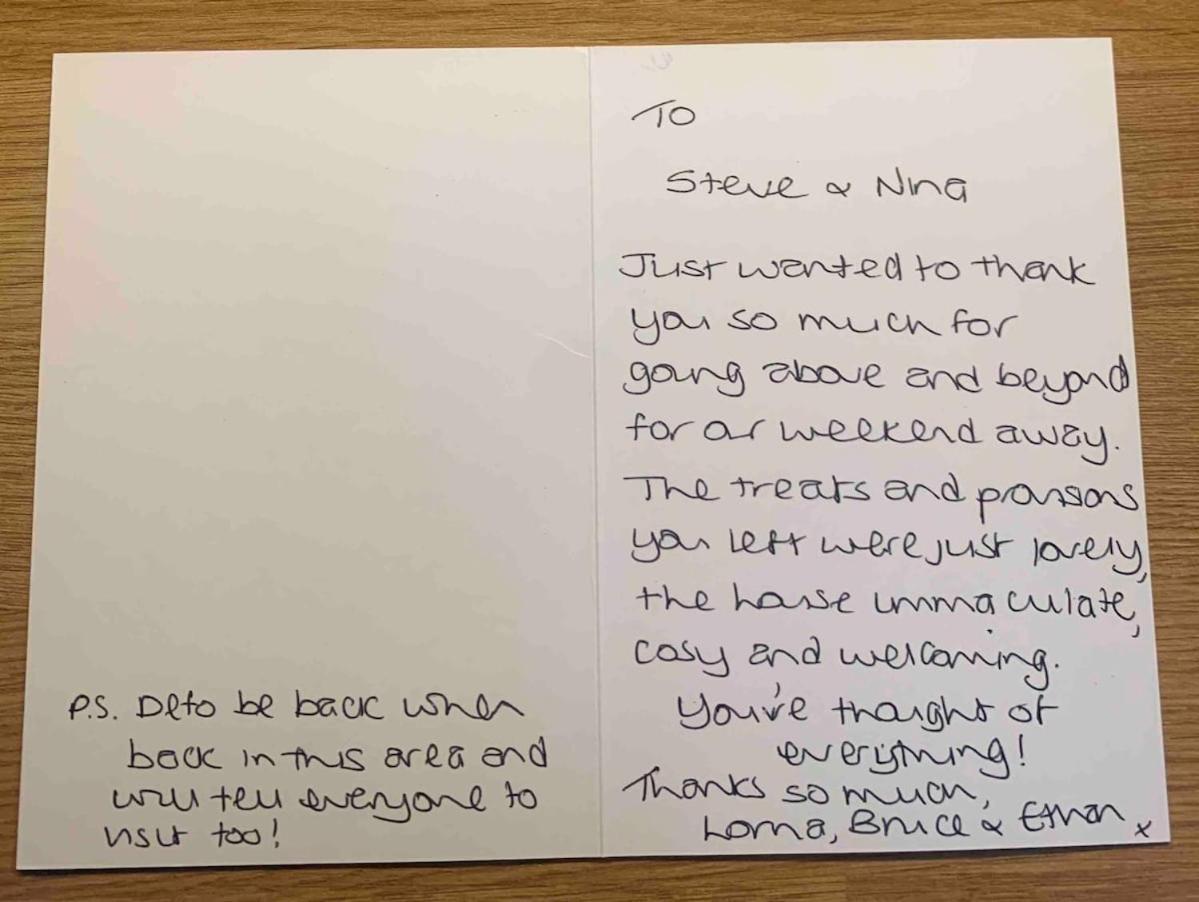 P.S. Defo be back when
back in this area and
will tell everyone to
visit too!
To
Steve & Nina
Just wanted to thank
you so much for
going above and beyond
for our weekend away.
The treats and provisions
you left were just lovely,
the house immaculate,
cosy and welcoming.
You've thought of
everything!
Thanks so much,
Lorna, Bruce & Ethan x